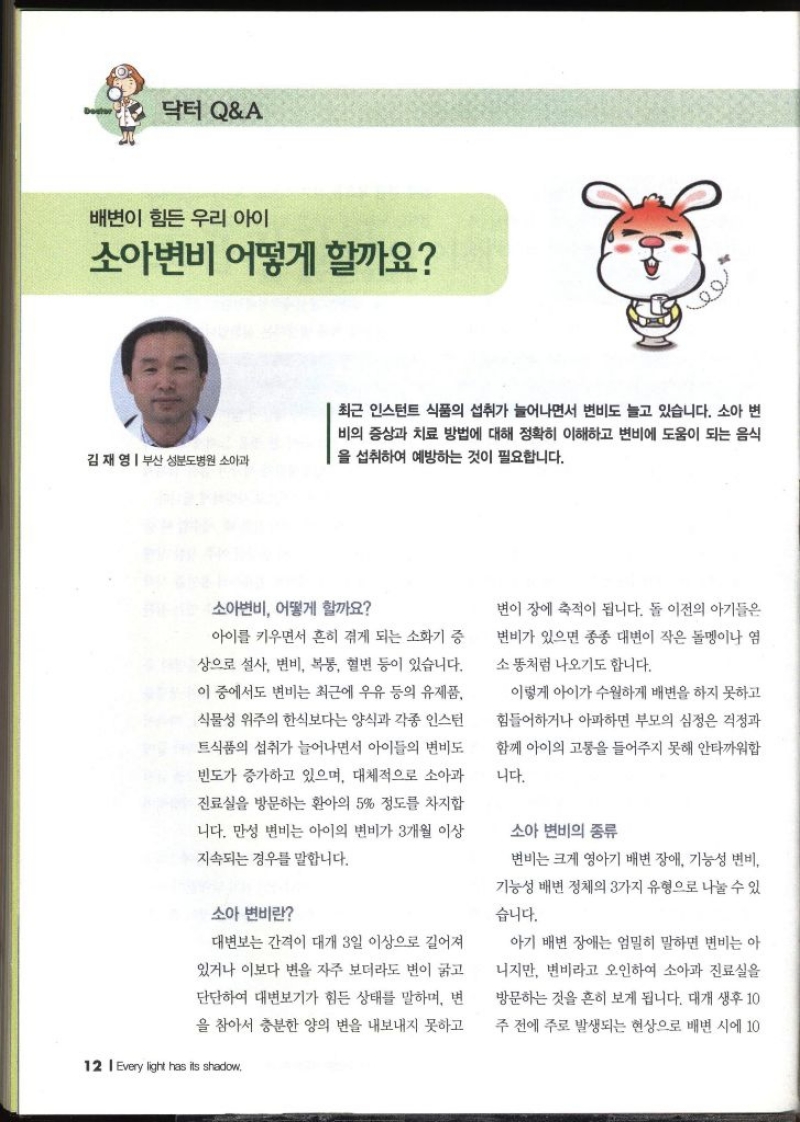 Doctor
닥터 Q&A
배변이 힘든 우리 아이
소아변비 어떻게 할까요?
김 재 영 | 부산 성분도병원 소아과
최근 인스턴트 식품의 섭취가 늘어나면서 변비도 늘고 있습니다. 소아 변
비의 증상과 치료 방법에 대해 정확히 이해하고 변비에 도움이 되는 음식
을 섭취하여 예방하는 것이 필요합니다.
소아변비, 어떻게 할까요?
아이를 키우면서 흔히 겪게 되는 소화기 증
상으로 설사, 변비, 복통, 혈변 등이 있습니다.
이 중에서도 변비는 최근에 우유 등의 유제품,
식물성 위주의 한식보다는 양식과 각종 인스턴
트식품의 섭취가 늘어나면서 아이들의 변비도
빈도가 증가하고 있으며, 대체적으로 소아과
진료실을 방문하는 환아의 5% 정도를 차지합
니다. 만성 변비는 아이의 변비가 3개월 이상
지속되는 경우를 말합니다.
소아 변비란?
대변보는 간격이 대개 3일 이상으로 길어져
있거나 이보다 변을 자주 보더라도 변이 굵고
단단하여 대변보기가 힘든 상태를 말하며, 변
을 참아서 충분한 양의 변을 내보내지 못하고
변이 장에 축적이 됩니다. 돌 이전의 아기들은
변비가 있으면 종종 대변이 작은 돌멩이나 염
소 똥처럼 나오기도 합니다.
이렇게 아이가 수월하게 배변을 하지 못하고
힘들어하거나 아파하면 부모의 심정은 걱정과
함께 아이의 고통을 들어주지 못해 안타까워합
니다.
소아 변비의 종류
변비는 크게 영아기 배변 장애, 기능성 변비,
기능성 배변 정체의 3가지 유형으로 나눌 수 있
습니다.
아기 배변 장애는 엄밀히 말하면 변비는 아
니지만, 변비라고 오인하여 소아과 진료실을
방문하는 것을 흔히 보게 됩니다. 대개 생후 10
주 전에 주로 발생되는 현상으로 배변 시에 10
12 | Every light has its shadow.